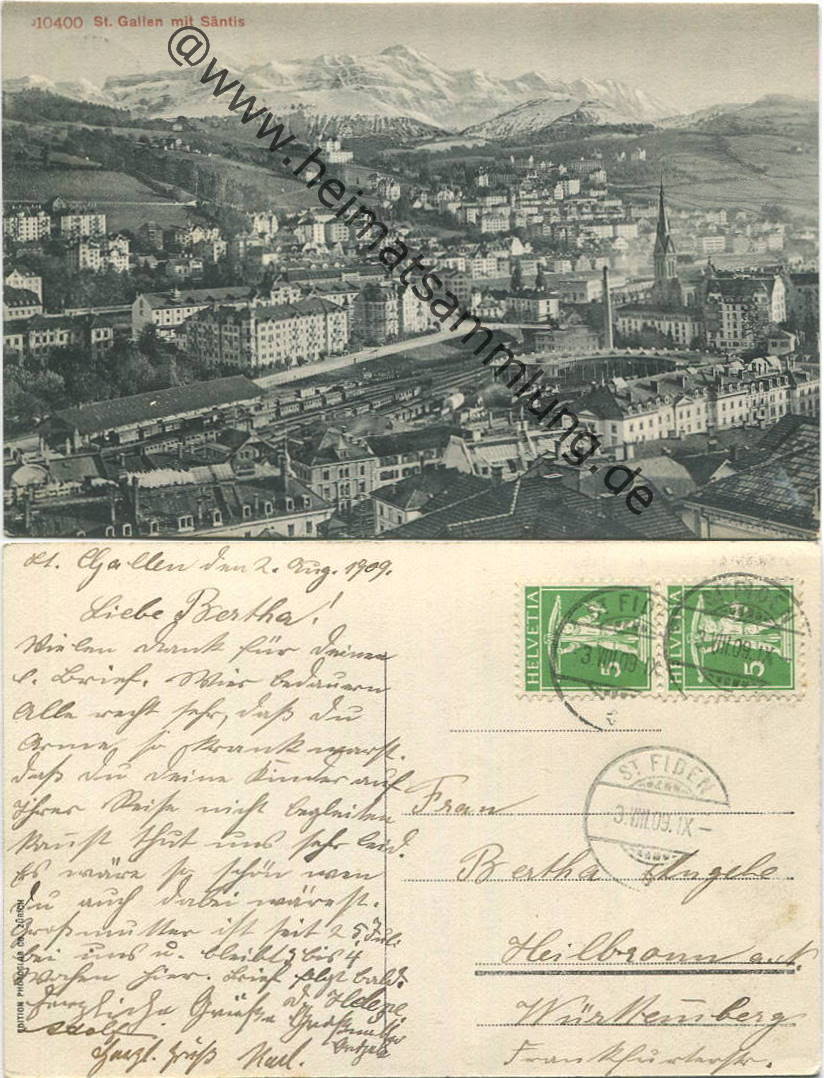 10400 St. Gallen mit Säntis
@www.heimatsammlung.de
St. Gallen den 2. Aug. 1909.
Liebe Bertha!
Vielen Dank für deinen
l. Brief. Wir bedauern
Alle recht sehr, daß du
Arme, so krank warst.
daß du deine Kinder auf
ihrer Reise nicht begleiten
kannst thut uns sehr leid.
Es wäre so schön wen
du auch dabei wärest.
Großmutter ist seit 25. Juli
bei uns u. bleibt 3 bis 4
Wochen hier. Brief folgt bald.
Herzliche Grüße Helene
Adolf. Großmutter
Herzl. Gruß Karl.
EDITION PHOTOGLOB CO. ZÜRICH
HELVETIA 5
HELVETIA 5
ST FIDEN
3.VIII.09.IX
ST FIDEN
3.VIII.09.IX
ST FIDEN
3.VIII.09.IX-
Frau
Bertha Angele
Heilbronn a./N.
Württemberg
Frankfurterstr.